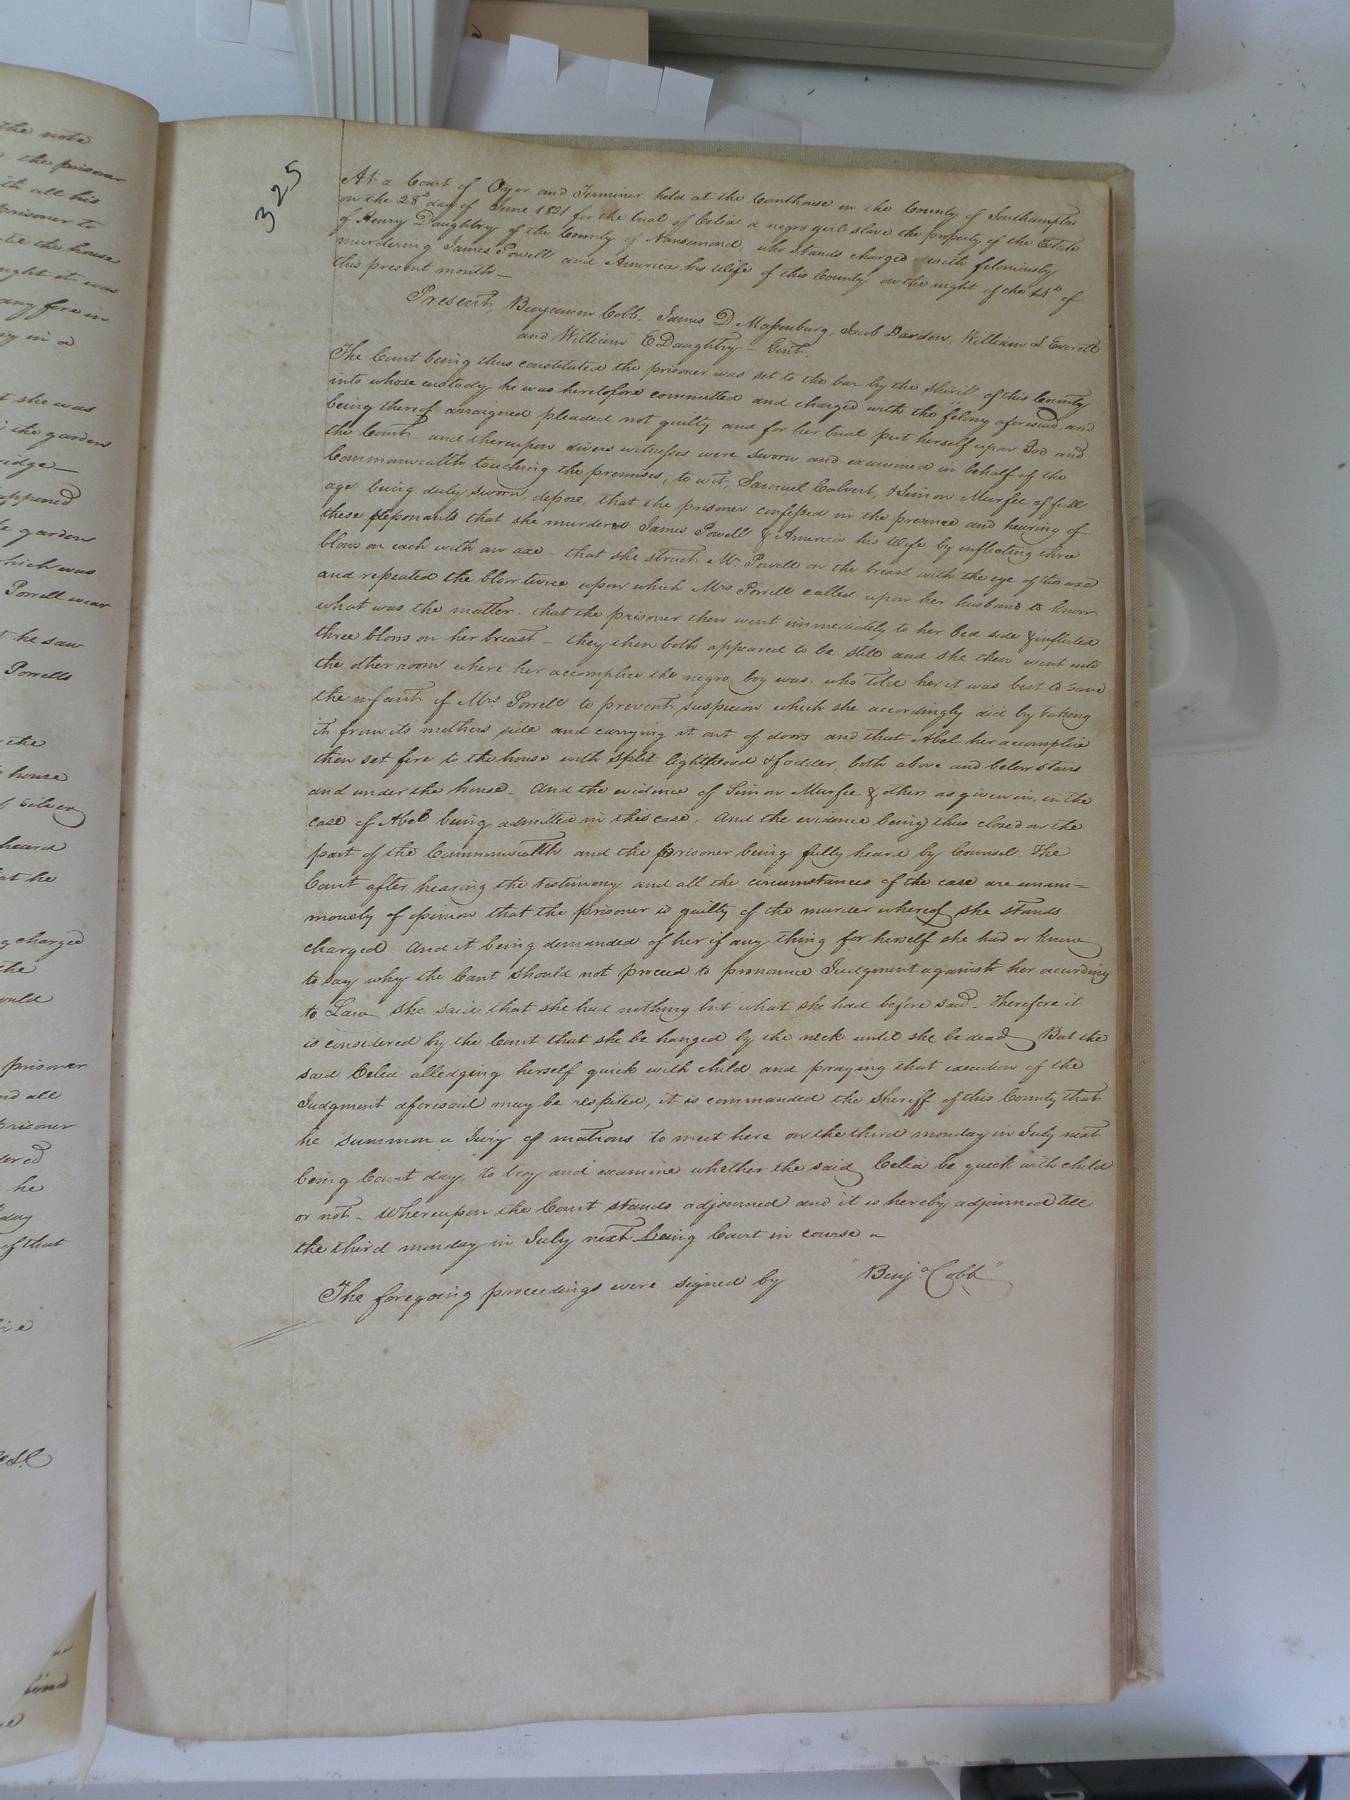 the note
the prisoner
ith all his
prisoner to
the house
ought it was
any fire in
in a
t she was
the garden
ridge—
append
garden
which was
Powell wear
t he saw
Powells
the
house
of silver
heard
at he
charged
the
ould
prisoner
nd all
prisoner
ered
he
day
of that
325
At a Court of Oyer and Terminer held at the Courthouse in the County of Southampton
on the 28th day of June 1821 for the trial of Celia a negro girl slave the property of the Estate
of Henry Daughtry of the County of Nansemond, who stands charged with feloniously
murdering James Powell and America his Wife of this County on the night of the 14th of
this present month—
Present, Benjamin Cobb, James D Massenburg, Jacob Darden, William I Everett
and William E Daughtry— Gent.
The Court being thus constituted the prisoner was set to the bar by the Sheriff of this County
into whose custody he was heretofore committed and charged with the felony aforesaid and
being thereof arraigned pleaded not guilty and for her trial put herself upon God and
the Court and thereupon divers witnesses were sworn and examined in behalf of the
Commonwealth touching the premises, to wit, Samuel Calvert, & Simon Murfee of full
age being duly sworn, depose, that the prisoner confessed in the presence and hearing of
these deponants that she murdered James Powell & America his Wife by inflicting three
blows on each with an axe— that she struck Mr Powell on the breast with the eye of the axe
and repeated the blow twice upon which Mrs Powell called upon her husband to know
what was the matter. that the prisoner then went immediately to her bed side & inflicted
three blows on her breast— they then both appeared to be still and she then went into
the other room where her accomplice the negro boy was. who told her it was best to save
the infant of Mrs Powell to prevent suspicion which she accordingly did by taking
it from its mothers side and carrying it out of doors and that Abel her accomplice
then set fire to the house with split lightwood & fodder, both above and below stairs
and under the house— And the evidence of Simon Murfee & others as given in, in the
case of Abel being admitted in this case. And the evidence being thus closed on the
part of the Commonwealth and the prisoner being fully heard by Counsel. The
Court after hearing the testimony and all the circumstances of the case are unani-
mously of opinion that the prisoner is guilty of the murder whereof she stands
charged. And it being demanded of her if any thing for herself she had or knew
to say why the Court should not proceed to pronounce Judgment against her according
to Law she said that she had nothing but what she had before said— Therefore it
is considered by the Court that she be hanged by the neck until she be dead But the
said Celia alledging herself quick with child and praying that execution of the
Judgment aforesaid may be respited, it is commanded the Sheriff of this County that
he summon a Jury of matrons to meet here on the third monday in July next
being Court day, to try and examine whether the said Celia be quick with child
or not— Whereupon the Court stands adjourned and it is hereby adjourned till
the third monday in July next being Court in course—
The foregoing proceedings were signed by "Benja Cobb"